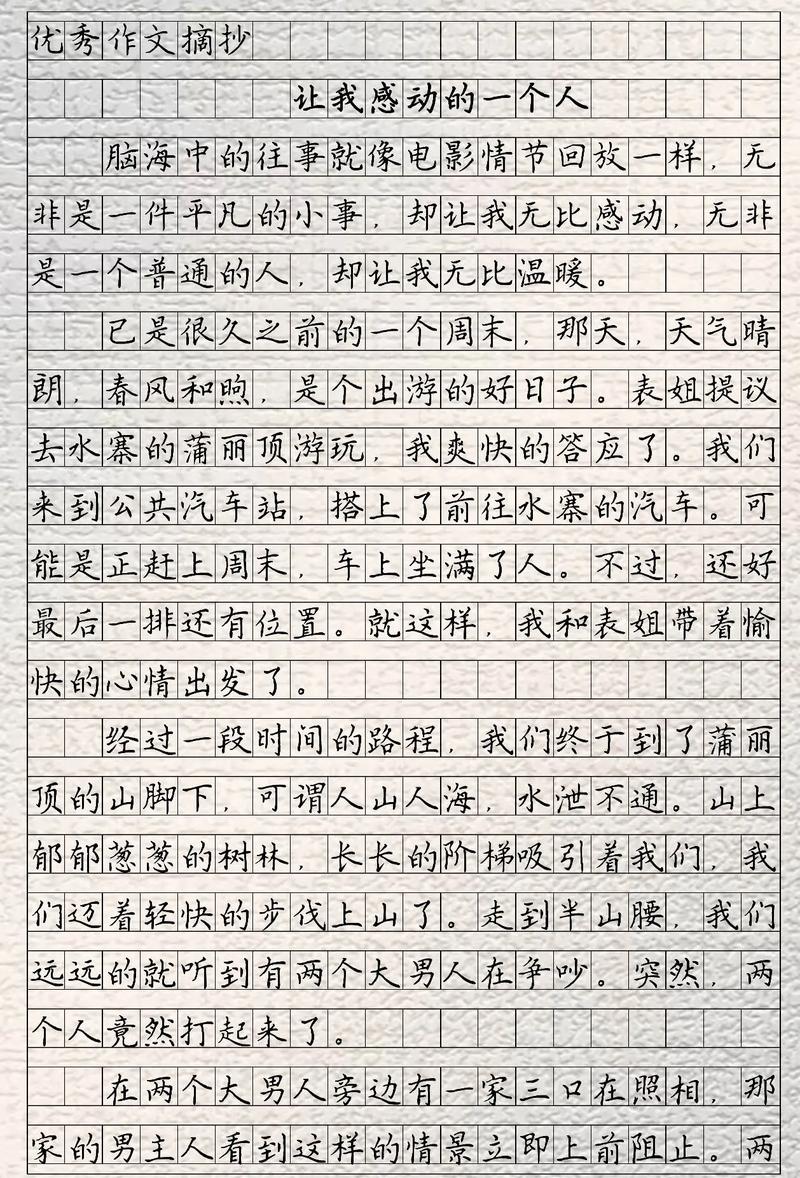 优秀作文摘抄
让我感动的一个人
脑海中的往事就像电影情节回放一样，无
非是一件平凡的小事，却让我无比感动，无非
是一个普通的人，却让我无比温暖。
已是很久之前的一个周末，那天，天气晴
朗，春风和煦，是个出游的好日子。表姐提议
去水寨的蒲丽顶游玩，我爽快的答应了。我们
来到公共汽车站，搭上了前往水寨的汽车。可
能是正赶上周末，车上坐满了人。不过，还好
最后一排还有位置。就这样，我和表姐带着愉
快的心情出发了。
经过一段时间的路程，我们终于到了蒲丽
顶的山脚下，可谓人山人海，水泄不通。山上
郁郁葱葱的树林，长长的阶梯吸引着我们，我
们迈着轻快的步伐上山了。走到半山腰，我们
远远的就听到有两个大男人在争吵。突然，两
个人竟然打起来了。
在两个大男人旁边有一家三口在照相，那
家的男主人看到这样的情景立即上前阻止。两